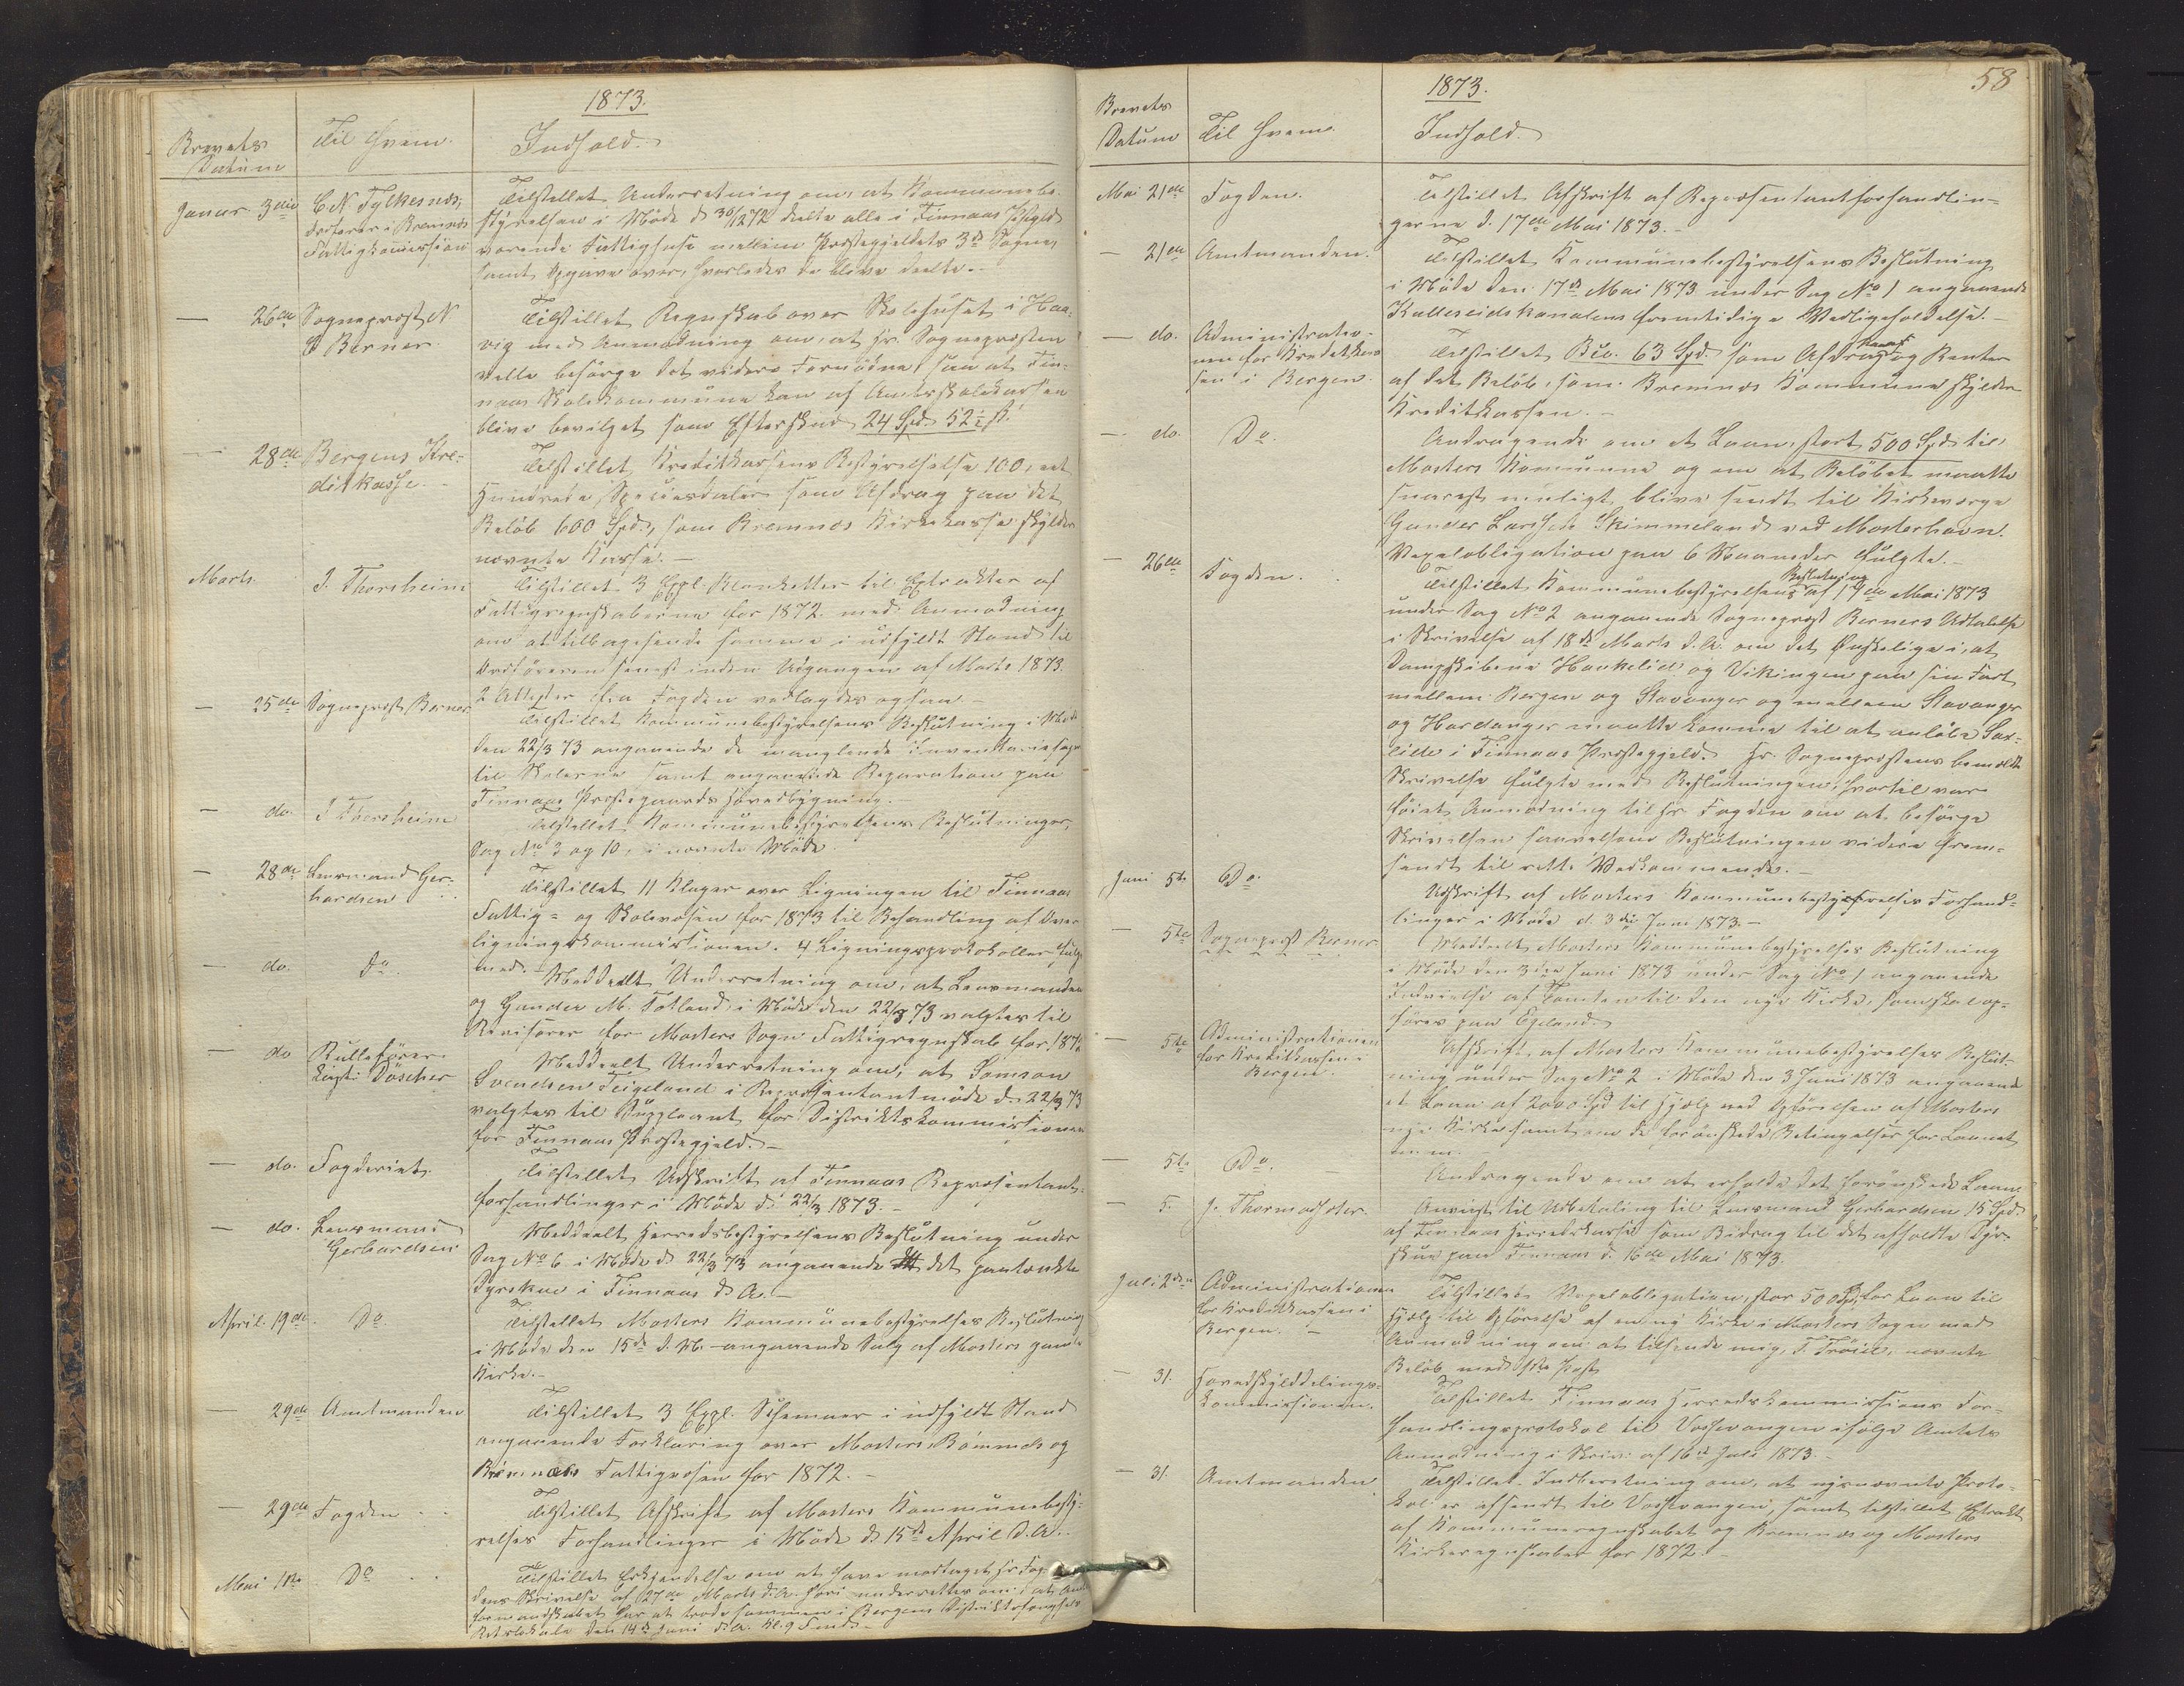 1873.
Brevets
Datum
Til Hvem.
Indhold.
Januar. 3die
C N Fylkesnes,
Ordfører i Bremnes
Fattigkommission
Tilstillet Underretning om, at Kommunebe-
styrelsen i Møde d 30/12 72 deelte alle i Finnaas Prgjeld
værende Fattighuse mellem Præstegjeldets 3de Sogne,
samt Opgave over, hvorledes de bleve deelte.-
— 26de
Sogneprest N
Berner.
Tilstillet Regnskab over Skolehuset i Haa-
vig med Anmodning om, at Hr. Sognepresten
vilde besørge det videre Fornødne, saa at Fin-
naas Skolekommune kan af Amtsskolekassen
blive bevilget som Efterskud 24 Spd. 52½ ß.
— 28de
Bergens Kre-
ditkasse.
Tilstillet Kreditkassens Bestyrelse 100, eet
Hundrede Speciesdaler som Afdrag paa det
Beløb 600 Spd., som Bremnæs Kirkekasse skylder
nævnte Kasse. —
Marts.
J. Thorsheim
Tilstillet 3 Expl. Blanketter til Extrakter af
Fattigregnskaberne for 1872 med Anmodning
om at tilbagesende samme i udfyldt Stand til
Ordføreren senest inden Udgangen af Marts 1873.
2 Attester fra Fogden vedlagdes ogsaa —
— 25de
Sogneprest Berner
Tilstillet Kommunebestyrelsens Beslutning i Møde
den 22/3 73 angaaende de manglende Inventariesager
til Skolerne samt angaaende Reparation paa
Finnaas Præstegaards Hovedbygning.
— do.
J Thorsheim
Tilstillet Kommunebestyrelsens Beslutninger,
Sag No 3 og 10, i nævnte Møde.
— 28de
Lensmand Ger-
hardsen
Tilstillet 11 Klager over Ligningen til Finnaas
Fattig- og Skolevæsen for 1873 til Behandling af Over-
ligningskommissionen. 4 Ligningsprotokoller fulgte
med. —
— do.
Do
Meddeelt Underretning om, at Lensmanden
og Gunder M. Totland i Møde den 22/3 73 valgtes til
Revisorer for Mosters Sogns Fattigregnskab for 1872
— do
Rullefører
Döscher
Meddeelt Underretning om, at Samson
Svendsen Teigeland i Repræsentantmøde d. 22/3 73
valgtes til Suppleant for Distriktskommissionen
for Finnaas Præstegjeld. —
— do.
Fogderiet.
Tilstillet Udskrift af Finnaas Repræsentant-
forhandlinger i Møde d 22/3 1873. —
— do.
Lensmand
Gerhardsen
Meddeelt Herredsbestyrelsens Beslutning under
Sag No 6 i Møde d 22/3 73 angaaende det paatænkte
Dyrskue i Finnaas d. A. —
April. 19de.
Do.
Tilstillet Mosters Kommunebestyrelses Beslutning
i Møde den 15de d. M. angaaende Salg af Mosters gamle
Kirke. —
— 29de
Amtmanden
Tilstillet 3 Expl. Schemaer i udfyldt Stand
angaaende Forklaring over Mosters, Bömmels og
Bremnæs Fattigvæsen for 1872. —
— 29de
Fogden
Tilstillet Afskrift af Mosters Kommunebesty-
relses Forhandlinger i Møde d 15de April d. A.
Mai 1ste
Do
Tilstillet Erkjendelse om at have modtaget Hr. Fog-
dens Skrivelse af 27de Marts d. A. hvori underrettes om, at Amts-
formandskabet har at træde sammen i Bergens Distriktsfængsels
Retslokale den 14de Juni d. A. Kl. 9 Form.
58
1873.
Brevets
Datum
Til Hvem
Indhold.
Mai 21de
Fogden.
Tilstillet Afskrift af Repræsentantforhandlin-
gerne d. 17de Mai 1873. —
— 21de
Amtmanden.
Tilstillet Kommunebestyrelsens Beslutning
i Møde den 17de Mai 1873 under Sag No 1 angaaende
Kulleseidskanalens fremtidige Vedligeholdelse. —
— do.
Administratio-
nen for Kreditkas-
sen i Bergen.
Tilstillet 63 Spd. som Afdrag og Renter
af det Beløb, som Bremnæs Kommune skylder
Kreditkassen. —
— do.
Do.
Andragende om et Laan, stort 500 Spd. til
Mosters Kommune og om at Beløbet maatte
snarest muligt blive sendt til Kirkeværge
Gunder Larssen Skimmeland ved Mosterhavn.
Vexelobligation paa 6 Maaneder fulgte. —
— 26de
Fogden.
Tilstillet Kommunebestyrelsens Beslutning af 17de Mai 1873
under Sag No 2 angaaende Sogneprest Berners Udtalelse
i Skrivelse af 18de Marts d. A. om det Ønskelige i, at
Dampskibene Haukelid og Vikingen paa sin Fart
mellem Bergen og Stavanger og mellem Stavanger
og Hardanger maatte komme til at anløbe Lar-
lide i Finnaas Præstegjeld. Hr. Sogneprestens bemeldte
Skrivelse fulgte med Beslutningen, hvortil var
føiet Anmodning til Hr Fogden om at besørge
Skrivelsen saavelsom Beslutningen videre frem-
sendt til rette Vedkommende. —
Juni 5te
Do.
Udskrift af Mosters Kommunebestyrelses Forhand-
linger i Møde d. 3die Juni 1873. —
— 5te
Sogneprest Berner
Meddeelt Mosters Kommunebestyrelses Beslutning
i Møde den 3die Juni 1873 under Sag No 1 angaaende
Indvielse af Tomten til den nye Kirke, som skal op-
føres paa Egeland.
— 5te
Administrationen
for Kreditkassen i
Bergen.
Afskrift af Mosters Kommunebestyrelses Beslut-
ning under Sag No 2 i Møde den 3 Juni 1873 angaaende
et Laan af 2000 Spd til Hjælp ved Opførelsen af Mosters
nye Kirke samt om de forønskede Betingelser for Laanet
— 5te
Do.
Andragende om at erholde det forønskede Laan.
— 5.
J. Thormodsæter.
Anvist til Udbetaling til Lensmand Gerhardsen 15 Spd.
af Finnaas Herredskasse som Bidrag til det afholdte Dyr-
skue paa Finnaas d. 16de Mai 1873.
Juli 2den
Administrationen
for Kreditkassen i
Bergen. —
Tilstillet Vexelobligation, stor 500 Spd, for Laan til
Hjælp til Opførelse af en ny Kirke i Mosters Sogn med
Anmodning om at tilsende mig, T. Trøen, nævnte
Beløb med 1ste Post.
— 31.
Hovedskylddelings-
kommissionen.
Tilstillet Finnaas Herredskommissions For-
handlingsprotokol til Vossevangen ifølge Amtets
Anmodning i Skriv. af 16de Juli 1873. —
— 31.
Amtmanden
Tilstillet Indberetning om, at nysnævnte Proto-
kol er afsendt til Vossevangen, samt tilstillet Extrakt
af Kommuneregnskabet og Bremnæs og Mosters
Kirkeregnskaber for 1872.